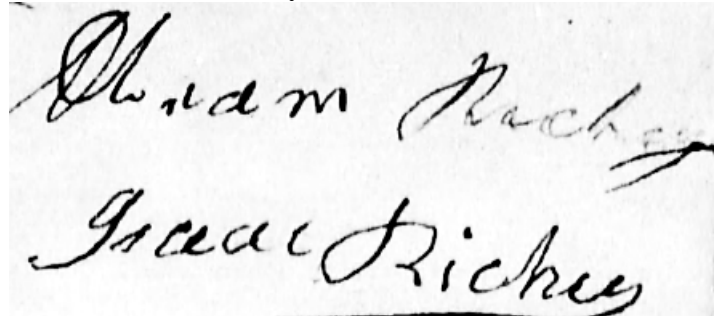 Abram Richey
Isaac Richey